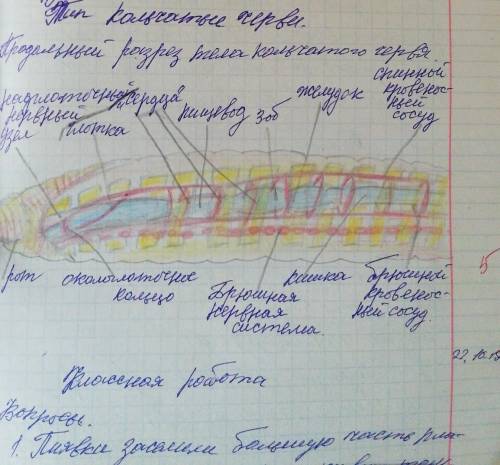 Тип кольчатые черви.
Продольный разрез тела кольчатого червя.
надглоточный
нервный
узел
глотка
"сердца"
пищевод
зоб
желудок
спинной
кровенос-
ный
сосуд
рот
окологлоточное
кольцо
Брюшная
нервная
система.
кишка
брюшной
кровенос-
ный сосуд.
5
Классная работа
Вопросы.
1. Пиявки засосали большую часть